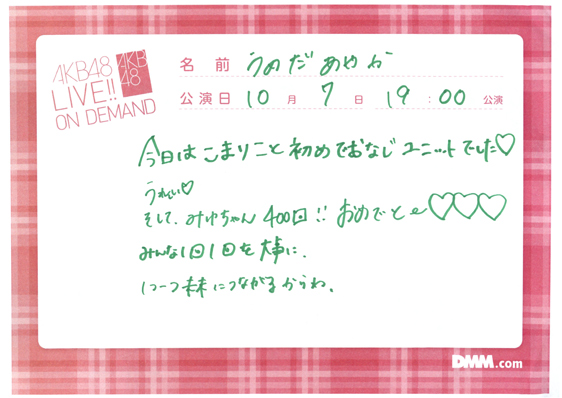 AKB48
LIVE!!
ON DEMAND
AKB
48
名前 うのだあやか
公演日 10月7日 19:00公演
今日はこまりこと初めておなじユニットでした♡
うれしい♡
そして、みゆちゃん400回!! おめでとe♡♡♡
みんな1回1回を大事に、
1つ一つ未来につながるからね。
DMM.com